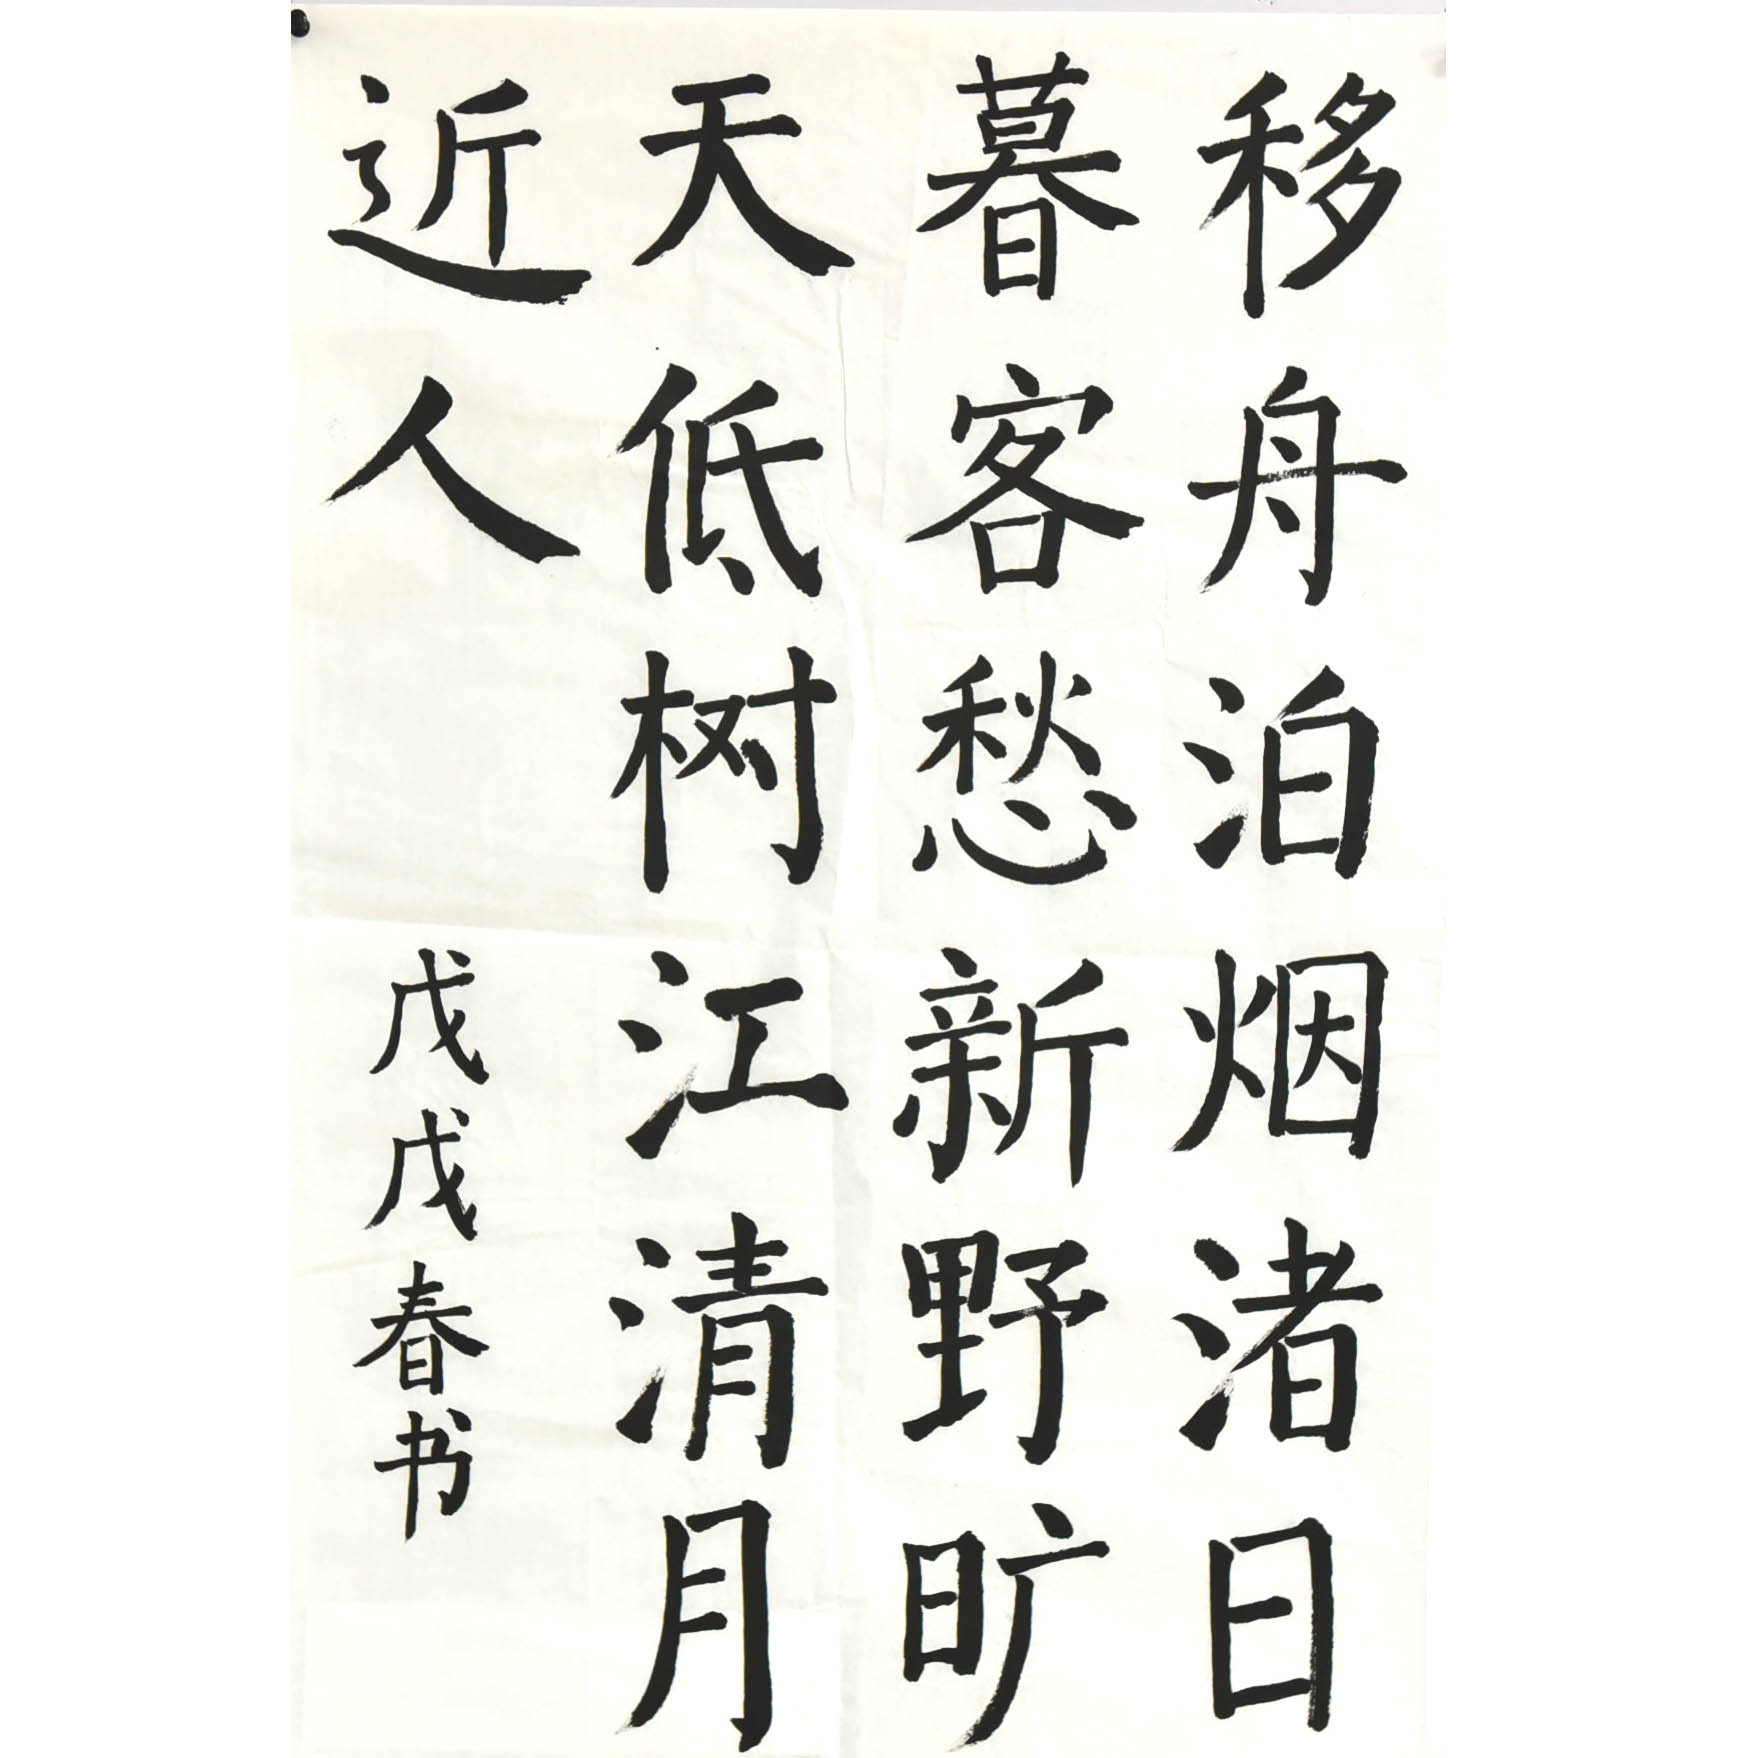 移舟泊烟渚日
暮客愁新野旷
天低树江清月
近人
戊戌春书